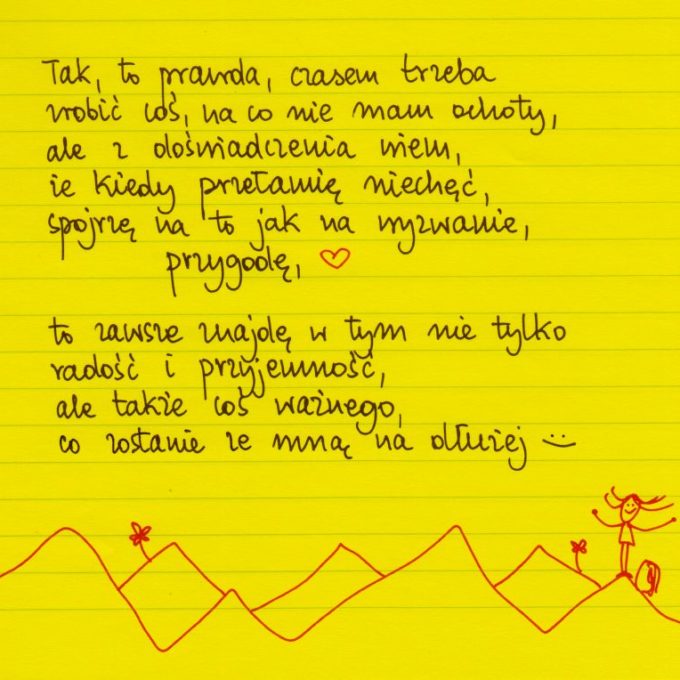 Tak, to prawda, czasem trzeba
zrobić coś, na co nie mam ochoty,
ale z doświadczenia wiem,
że kiedy przełamię niechęć,
spojrzę na to jak na wyzwanie,
przygodę,
to zawsze znajdę w tym nie tylko
radość i przyjemność,
ale także coś ważnego,
co zostanie ze mną na dłużej